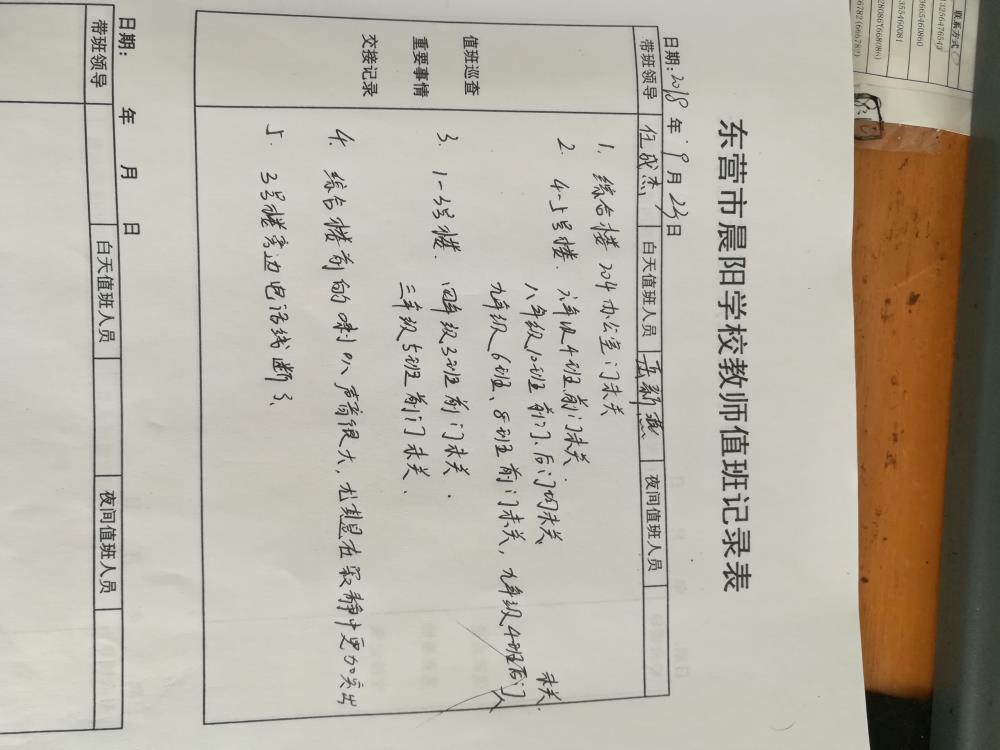 东营市晨阳学校教师值班记录表
日期:2018年9月23日
带班领导 任成杰 白天值班人员 夜间值班人员
值班巡查
重要事情
交接记录
1. 综合楼204办公室门未关
2. 4-5号楼. 六年级4班前门未关.
八年级10班前门、后门均未关
九年级6班、8班前门未关, 九年级4班后门
未关.
3. 1-3号楼. 四年级3班前门未关.
三年级5班前门未关.
4. 综合楼前的喇叭声音很大, 尤其是在寂静中更加突出
5. 3号楼旁边电话线断了、
日期: 年 月 日
带班领导 白天值班人员 夜间值班人员
联系方式
13256476543
355460081